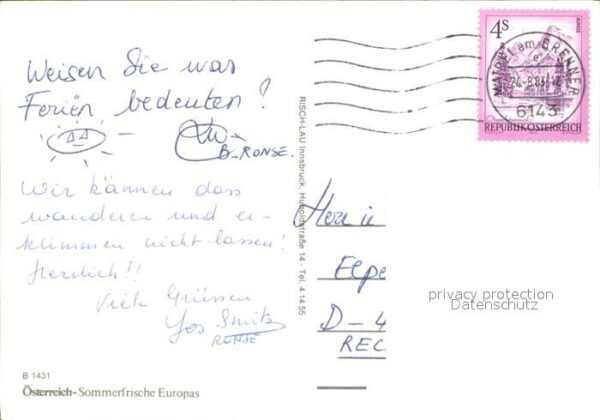 Weisen Sie was
Ferien bedeuten?
B-RONSE.
Wir kännen dass
wanderen und er-
klimmen nicht lassen!
Herrlich!!
Viele Grüssen
Jos Smits
RONSE
B 1431
Österreich-Sommerfrische Europas
RISCH-LAU Innsbruck, Humboldstraße 14 - Tel. 4 14 55
4S
ALMSEE
MATREI am BRENNER
24.-8.83
6143
REPUBLIK ÖSTERREICH
Herr u
Elpe
D-4
REC
privacy protection
Datenschutz